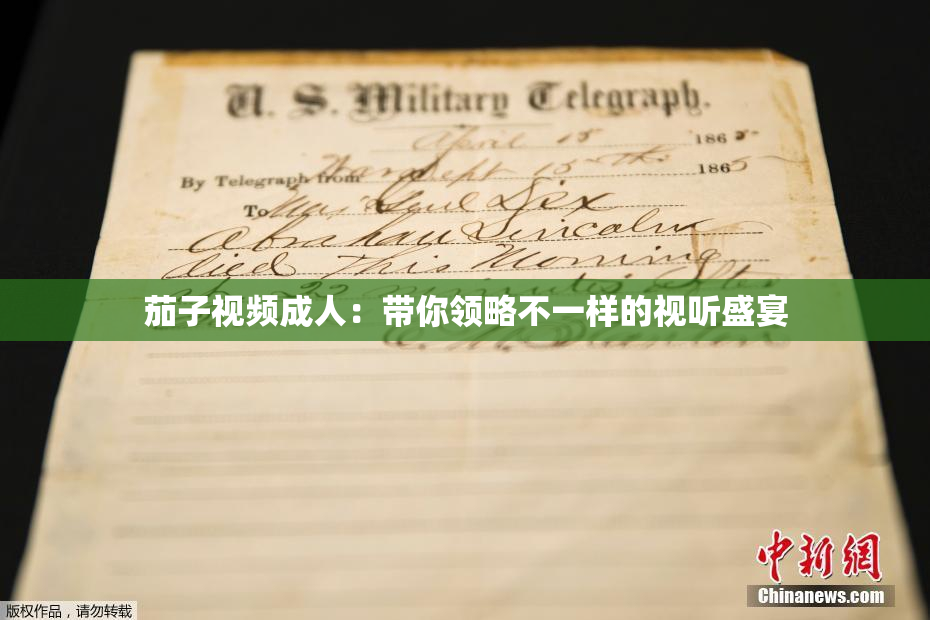 U. S. Military Telegraph.
April 15 1865
By Telegraph from War Dept 15th 1865
To Maj Genl Dix
Abraham Lincoln
died This Morning
22 minutes after
茄子视频成人：带你领略不一样的视听盛宴
中新網
Chinanews.com
版权作品，请勿转载